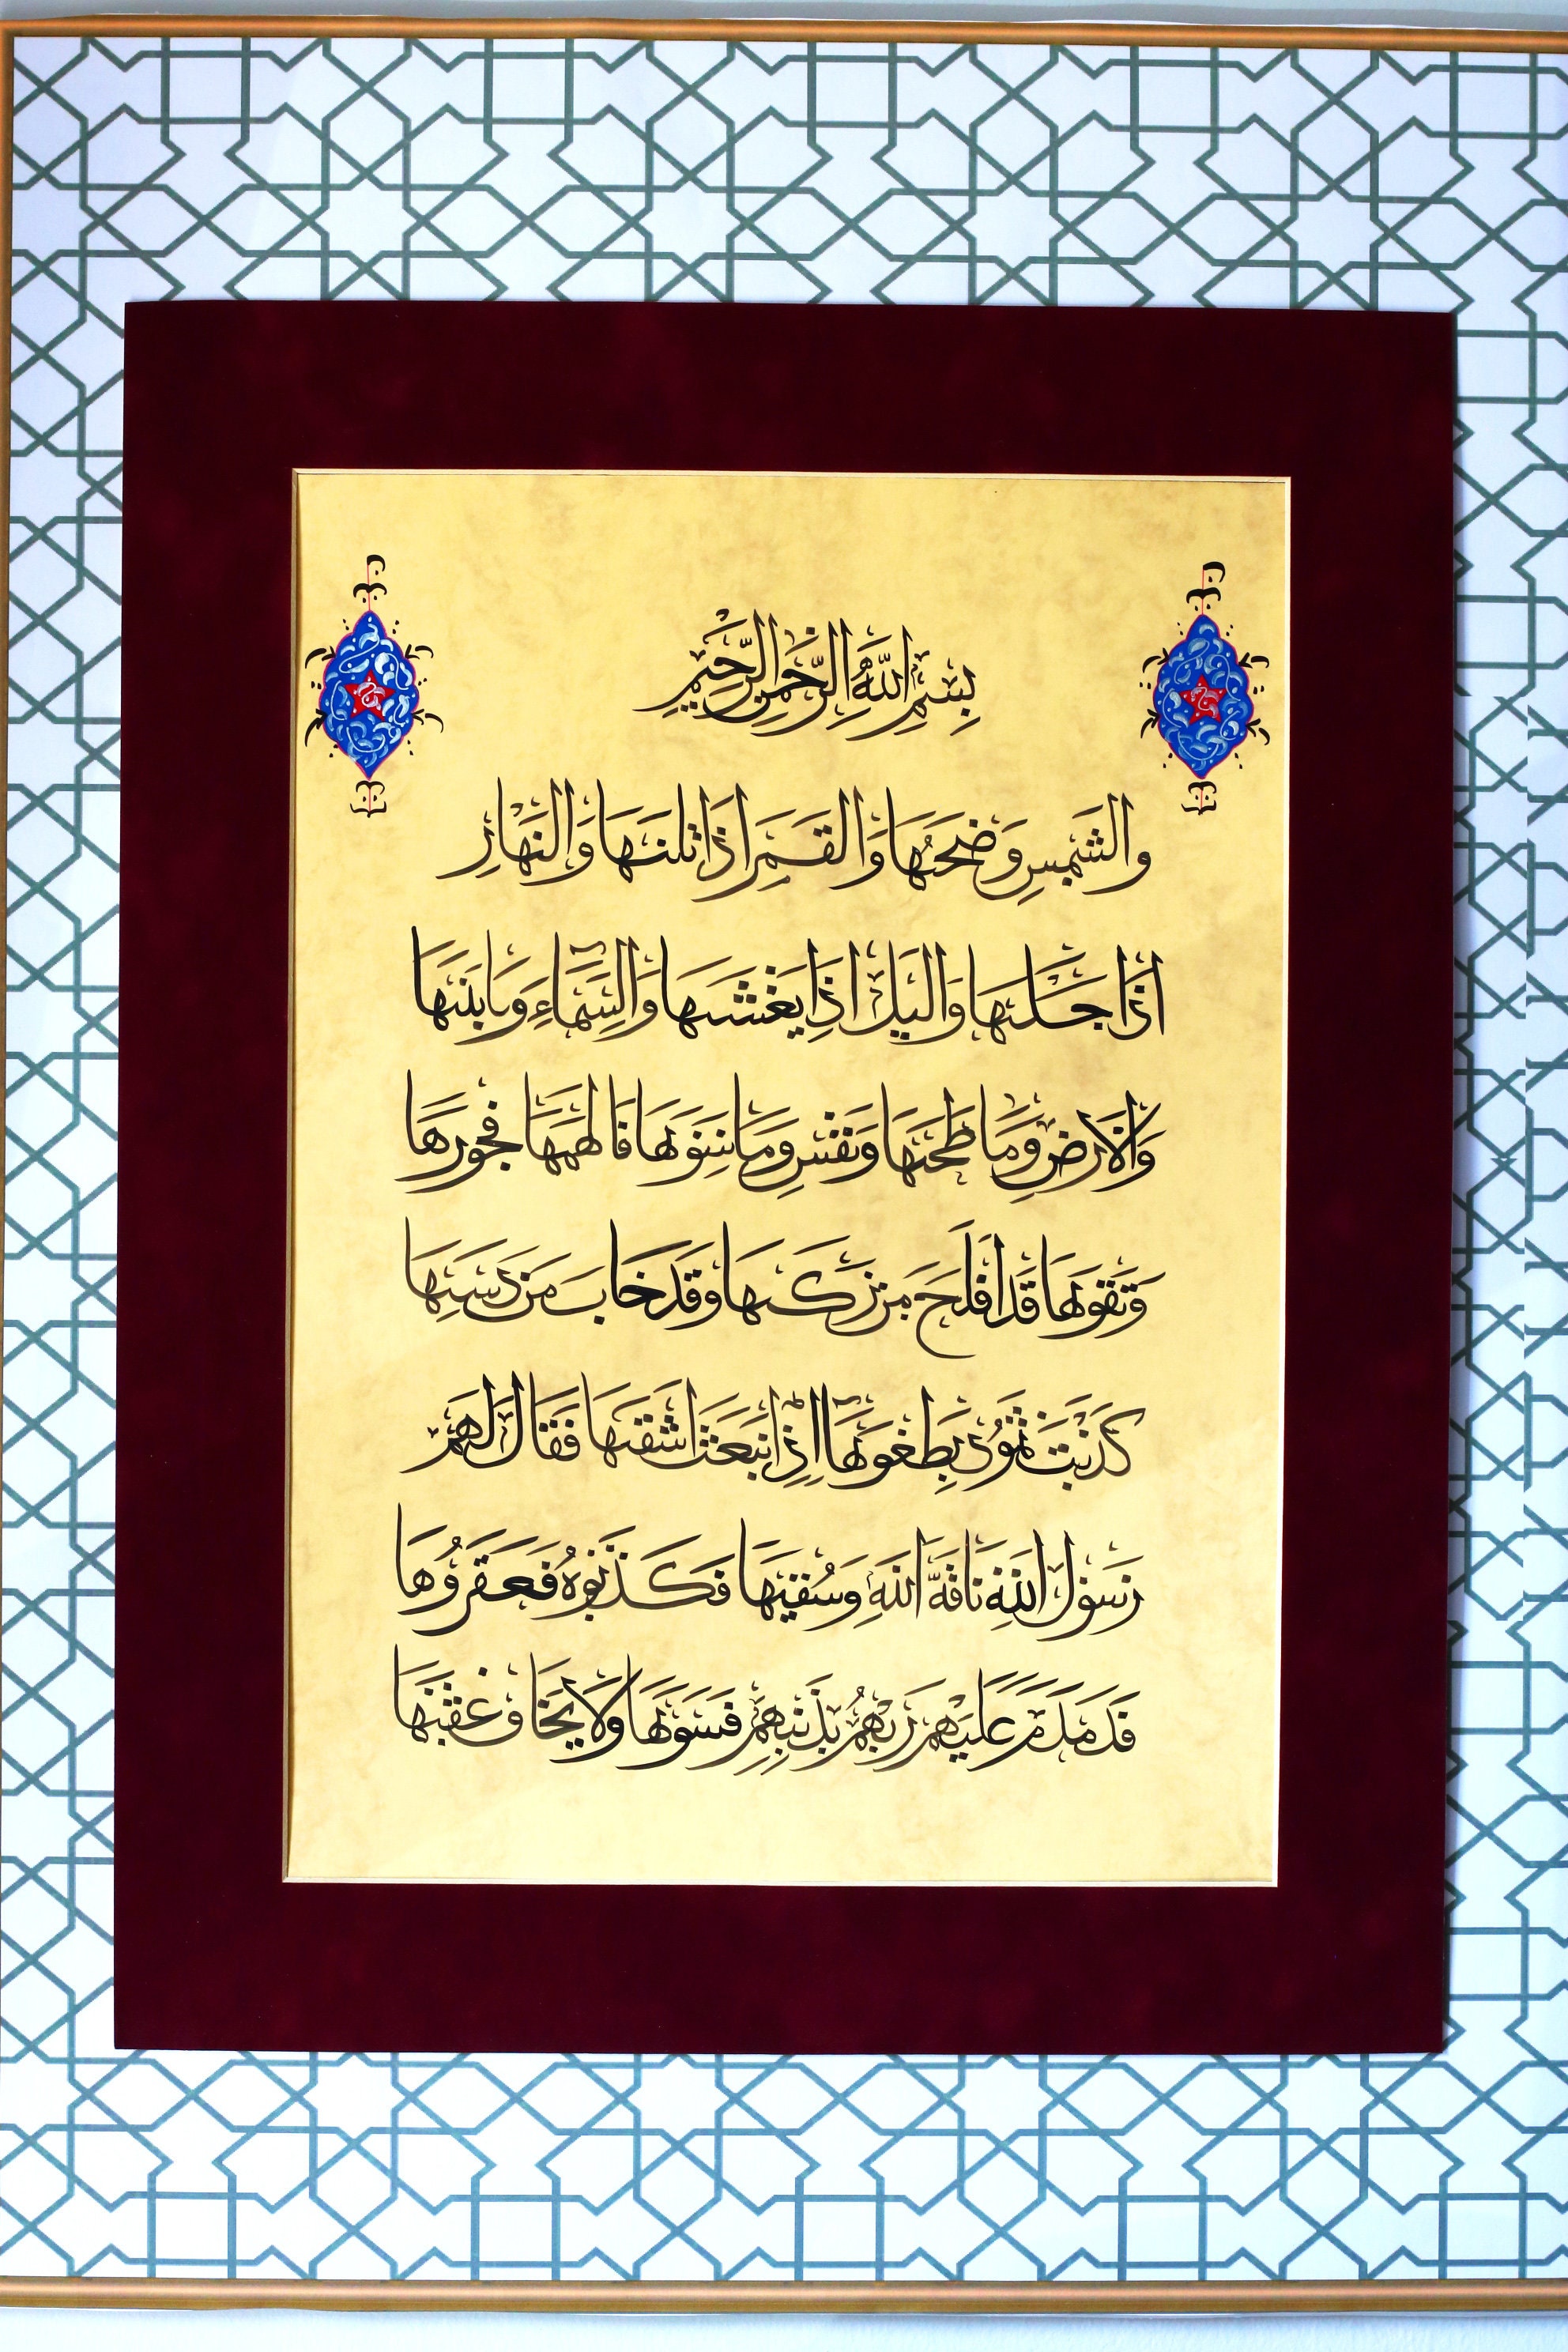 بِسْمِ اللَّهِ الرَّحْمٰنِ الرَّحِيمِ
وَالشَّمْسِ وَضُحَىٰهَا وَالْقَمَرِ إِذَا تَلَىٰهَا وَالنَّهَارِ
إِذَا جَلَّىٰهَا وَاللَّيْلِ إِذَا يَغْشَىٰهَا وَالسَّمَاءِ وَمَا بَنَىٰهَا
وَالْأَرْضِ وَمَا طَحَىٰهَا وَنَفْسٍ وَمَا سَوَّىٰهَا فَأَلْهَمَهَا فُجُورَهَا
وَتَقْوَىٰهَا قَدْ أَفْلَحَ مَنْ زَكَّىٰهَا وَقَدْ خَابَ مَنْ دَسَّىٰهَا
كَذَّبَتْ ثَمُودُ بِطَغْوَىٰهَا إِذِ انْبَعَثَ أَشْقَىٰهَا فَقَالَ لَهُمْ
رَسُولُ اللَّهِ نَاقَةَ اللَّهِ وَسُقْيَٰهَا فَكَذَّبُوهُ فَعَقَرُوهَا
فَدَمْدَمَ عَلَيْهِمْ رَبُّهُمْ بِذَنْبِهِمْ فَسَوَّىٰهَا وَلَا يَخَافُ عُقْبَٰهَا